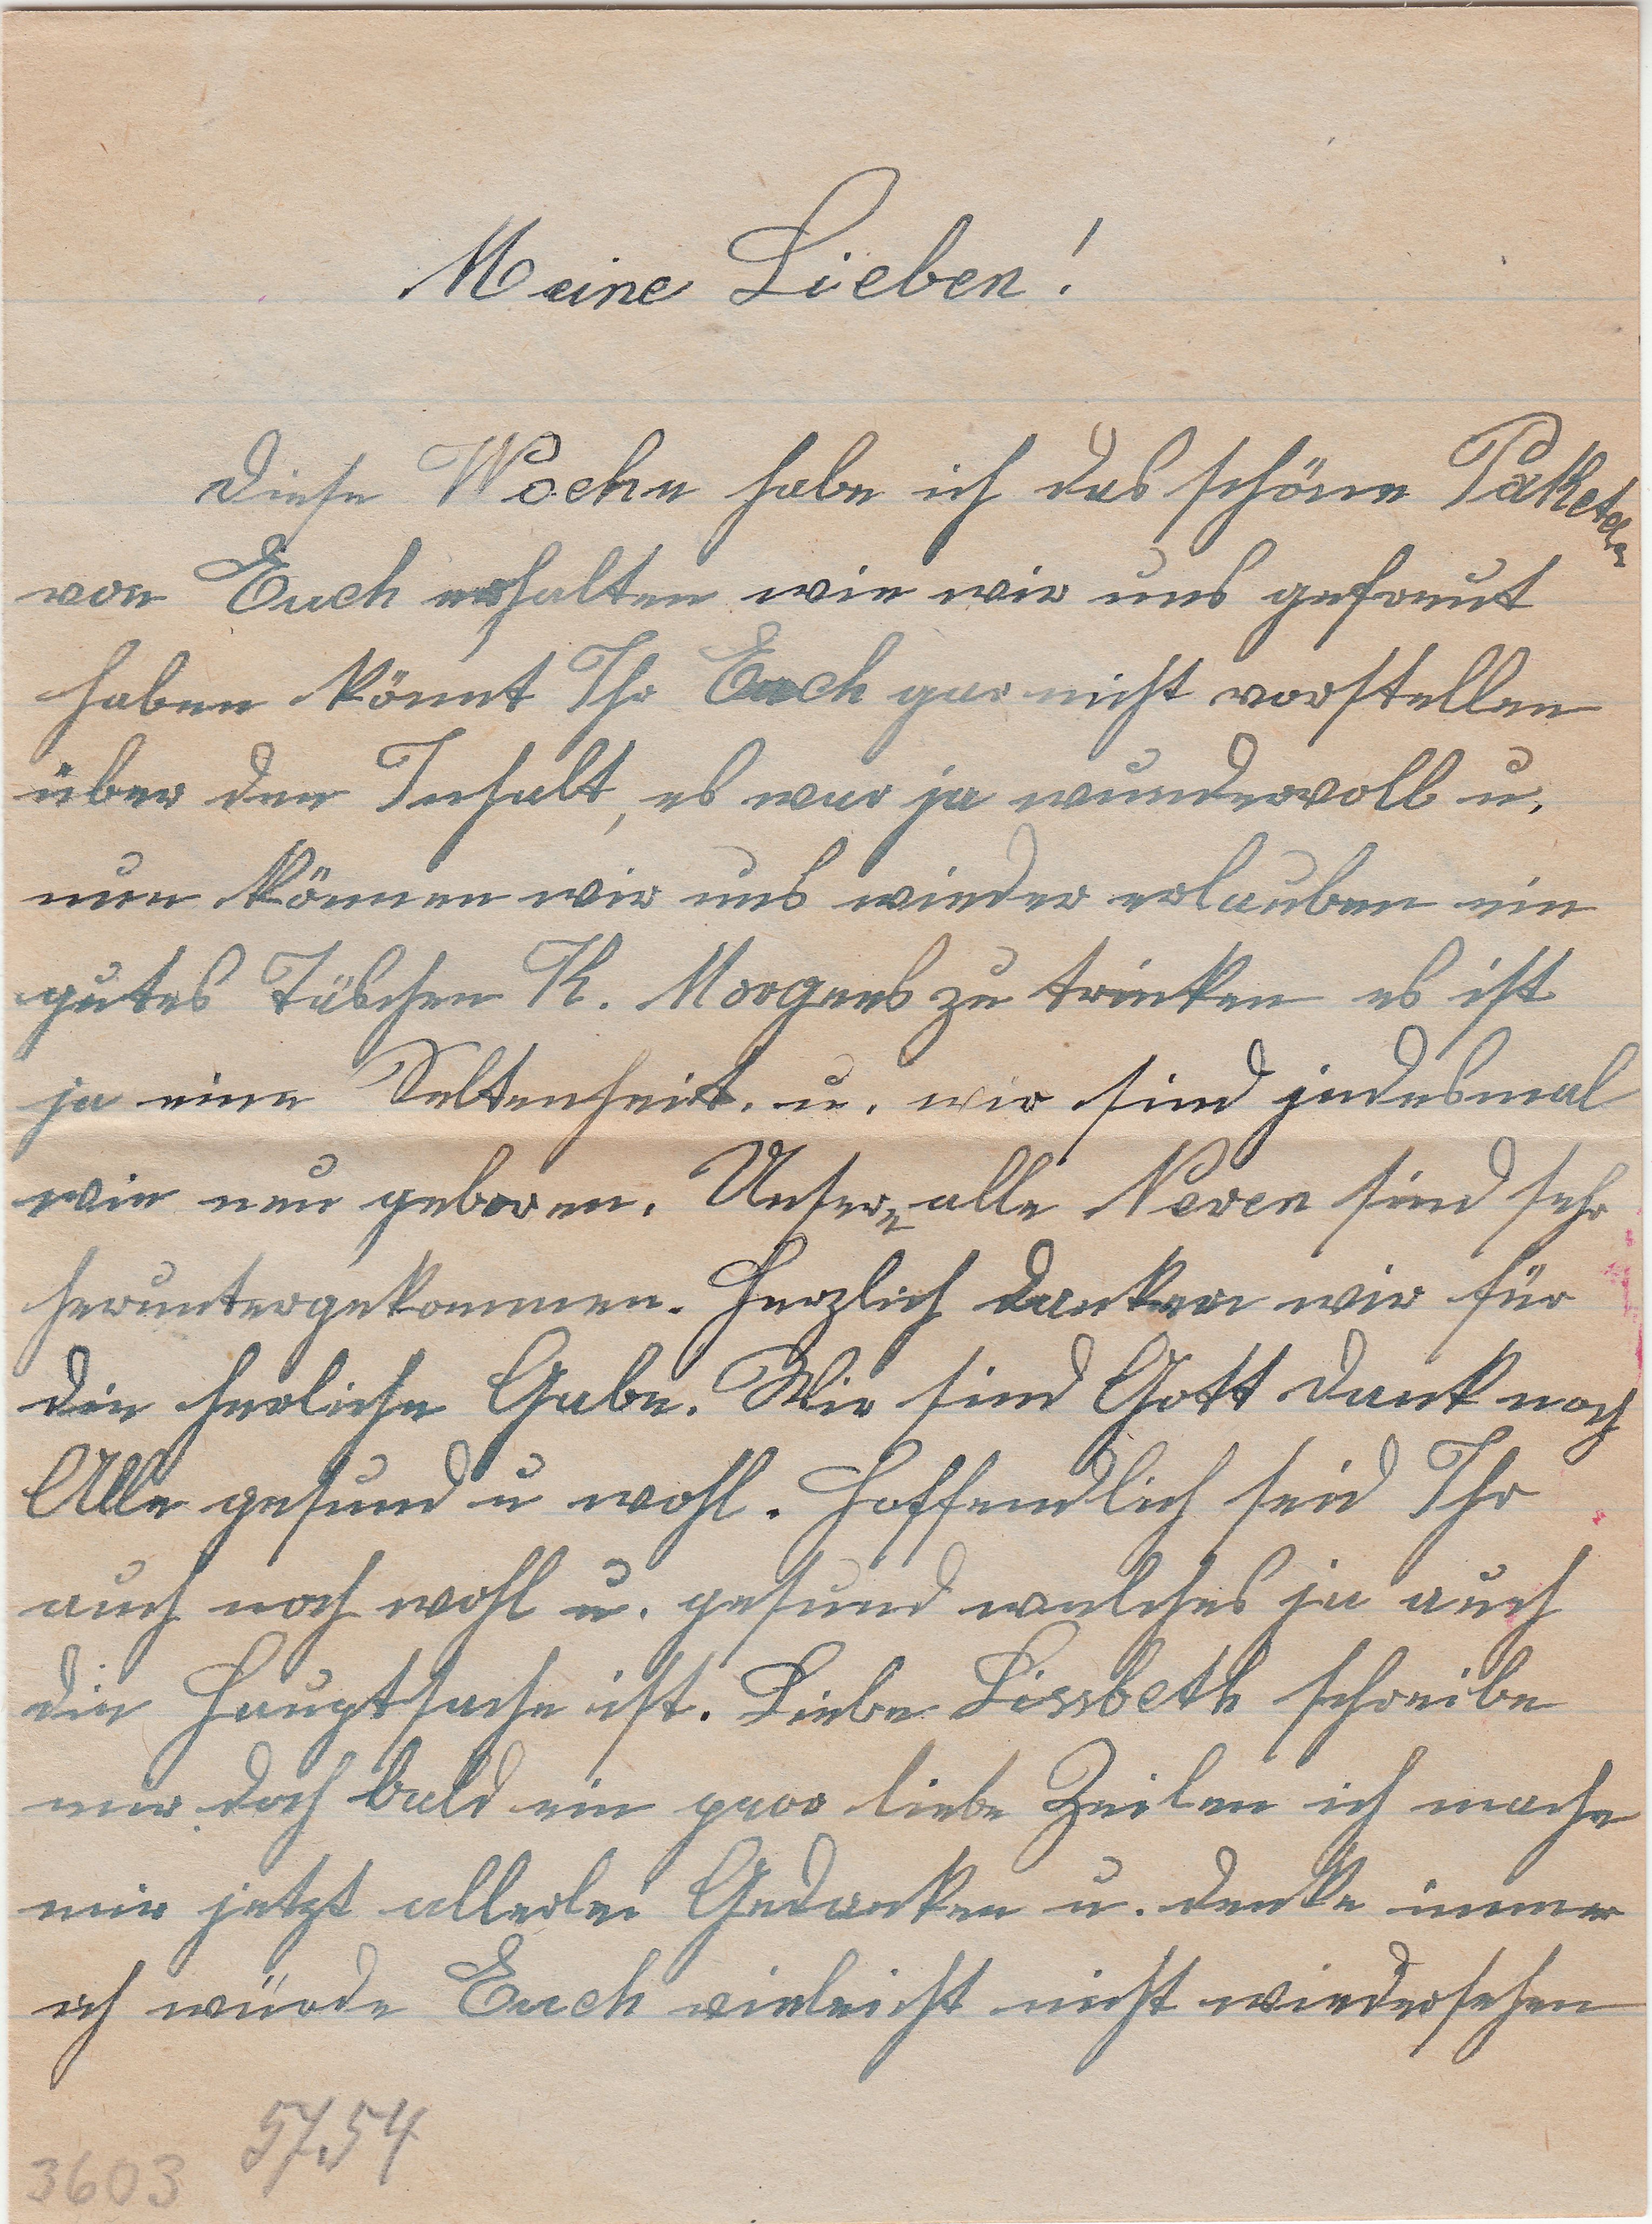 Meine Lieben!
Diese Woche habe ich das schöne Paketchen
von Euch erhalten wie wir uns gefreut
haben könnt Ihr Euch gar nicht vorstellen
über den Inhalt, es war ja wundervoll u.
nun können wir uns wieder erlauben ein
gutes Täschen K. Morgens zu trinken es ist
ja eine Seltenheit. u. wir sind jedesmal
wie neu geboren. Unsere alle Neren sind sehr
heruntergekommen. Herzlich danken wir für
die herliche Gabe. Wir sind Gott dank noch
Alle gesund u wohl. Hoffendlich seid Ihr
auch noch wohl u. gesund welches ja auch
die Hauptsache ist. Liebe Lissbeth schreibe
mir doch bald ein paar liebe Zeilen ich mache
mir jetzt allerlei Gedanken u. denke immer
ich würde Euch vieleicht nicht wiedersehen
5754
3603